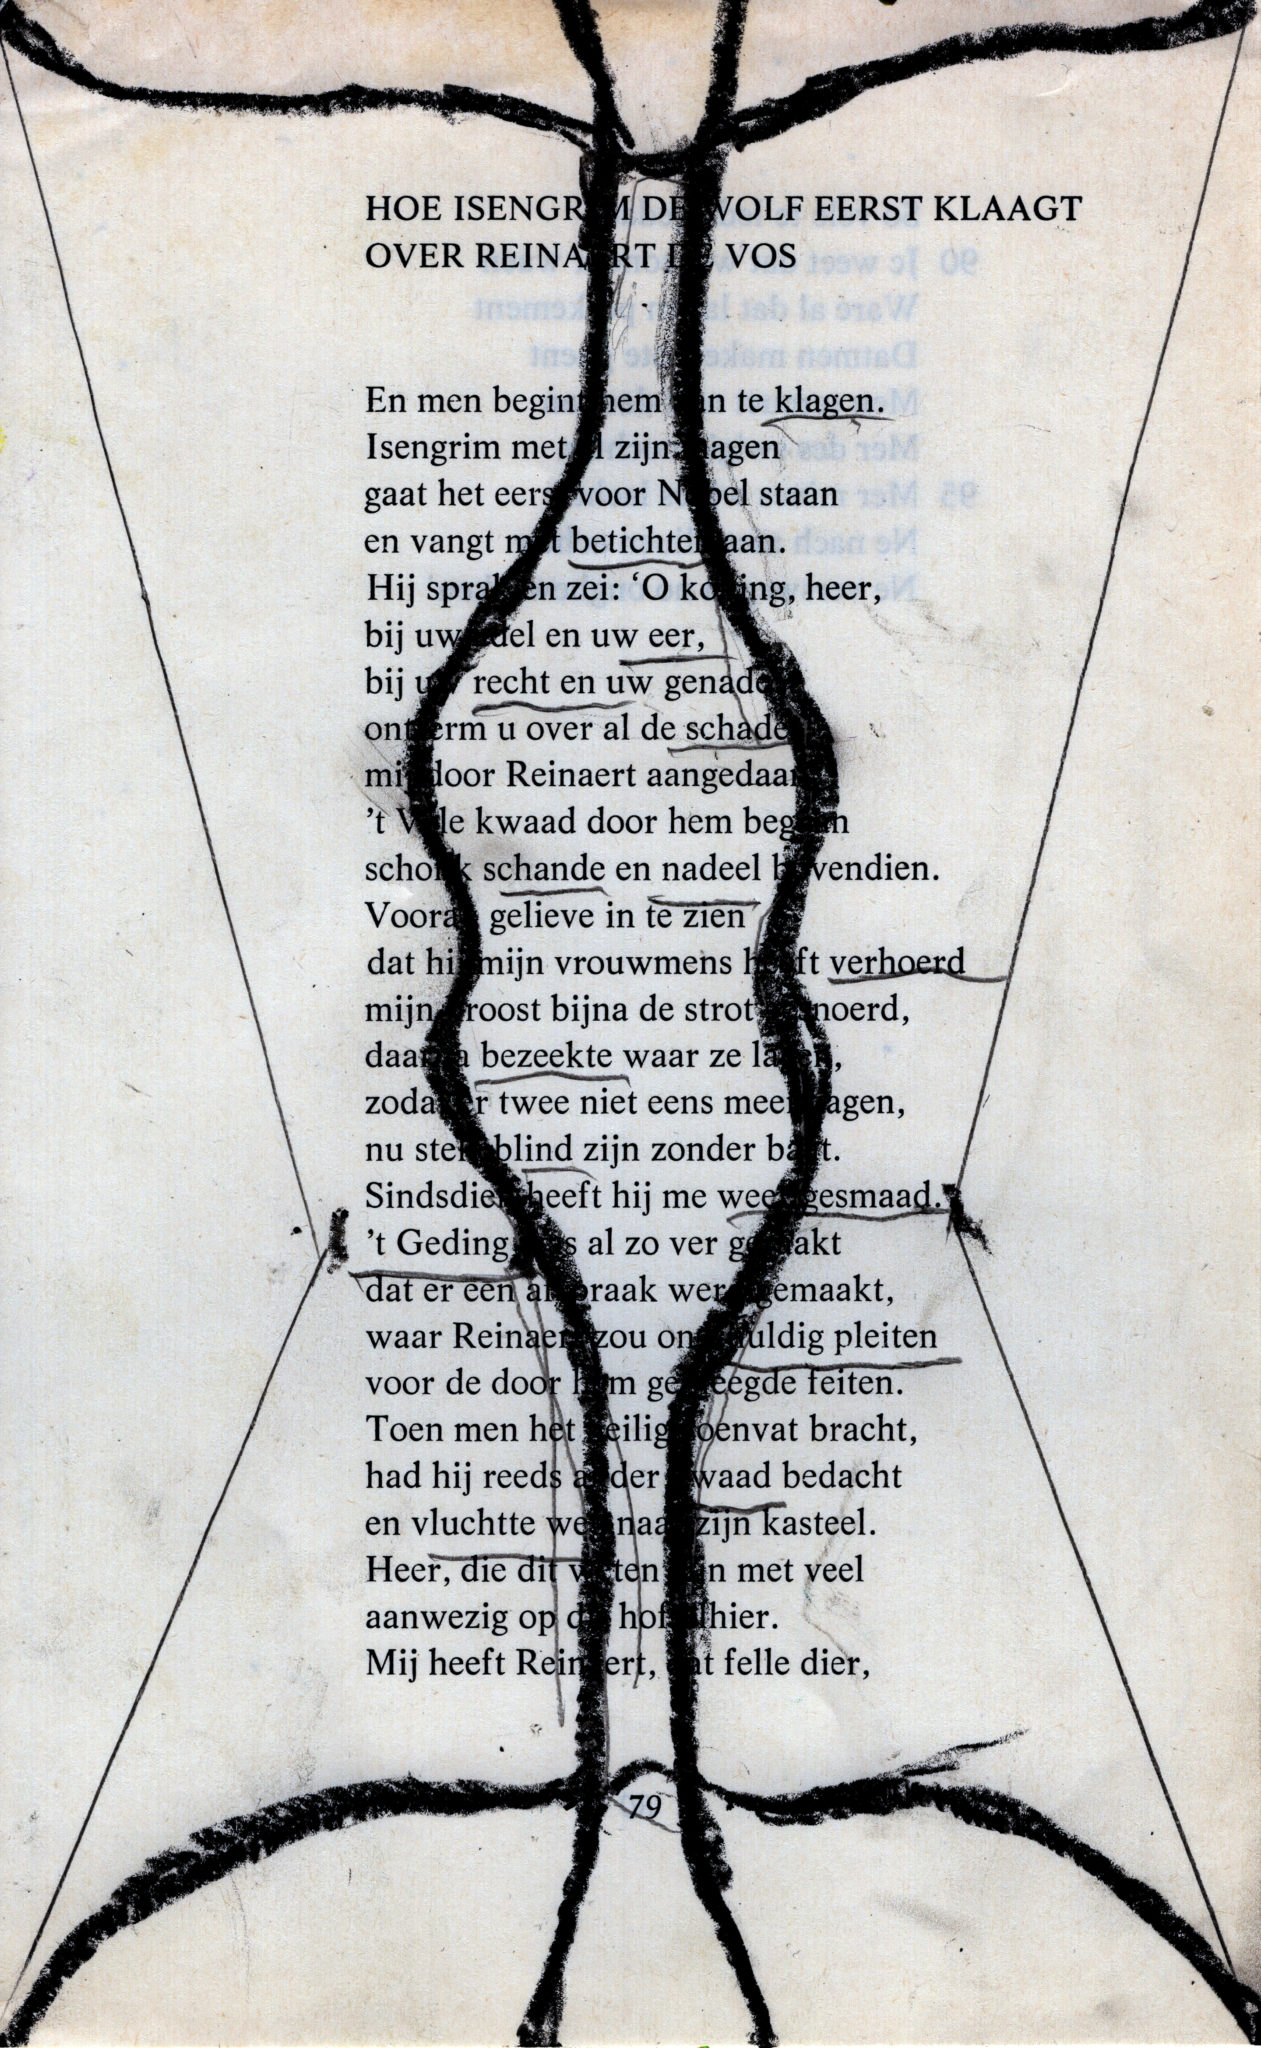 HOE ISENGRIM DE WOLF EERST KLAAGT
OVER REINAERT DE VOS
En men begint hem aan te klagen.
Isengrim met al zijn magen
gaat het eerst voor Nobel staan
en vangt met betichten aan.
Hij sprak en zei: ‘O koning, heer,
bij uw adel en uw eer,
bij uw recht en uw genade
ontferm u over al de schade
mij door Reinaert aangedaan
’t Vele kwaad door hem begaan
schonk schande en nadeel bovendien.
Vooral gelieve in te zien
dat hij mijn vrouwmens heeft verhoerd
mijn kroost bijna de strot gesnoerd,
daarna bezeekte waar ze lagen,
zodat er twee niet eens meer zagen,
nu blind zijn zonder baat.
Sindsdien heeft hij me weer gesmaad.
’t Geding was al zo ver geraakt
dat er een afspraak werd gemaakt,
waar Reinaert zou onschuldig pleiten
voor de door hem gepleegde feiten.
Toen men het heilig bracht,
had hij reeds ander kwaad bedacht
en vluchtte weg naar zijn kasteel.
Heer, die dit weten zijn met veel
aanwezig op dit hof alhier.
Mij heeft Reinaert, dat felle dier,
79